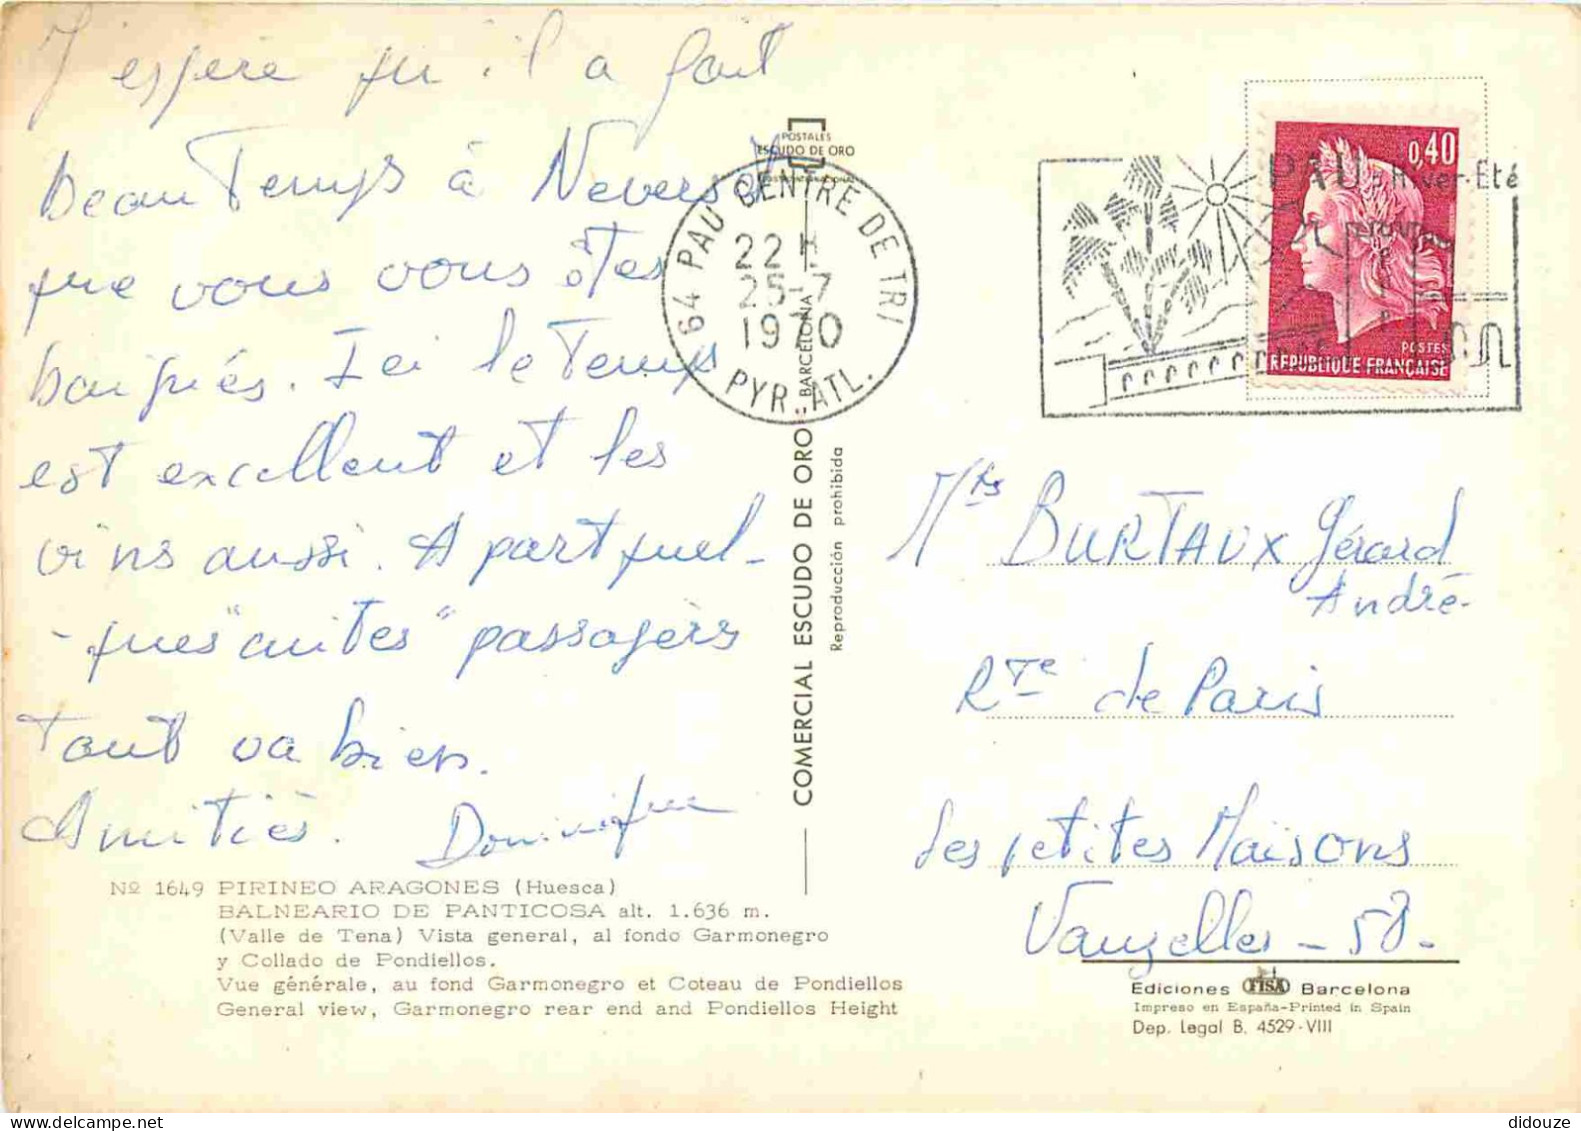 J'espère qu'il a fait
beau Temps à Nevers et
que vous vous êtes
baignés. Ici le Temps
est excellent et les
vins aussi. A part quel-
-ques "cuites" passagèrs
Tout va bien.
Amitiès. Dominique
POSTALES
ESCUDO DE ORO
64 PAU CENTRE DE TRI
22 H
25-7
1970
PYR.-ATL.
PAU - Hiver-Eté
0,40
POSTES
REPUBLIQUE FRANÇAISE
COMERCIAL ESCUDO DE ORO BARCELONA
Reproducción prohibida
Mrs BURTAUX Gérard
André-
RTe de Paris
Les petites Maisons
Vauzelles - 58 -
Nº 1649 PIRINEO ARAGONES (Huesca)
BALNEARIO DE PANTICOSA alt. 1.636 m.
(Valle de Tena) Vista general, al fondo Garmonegro
y Collado de Pondiellos.
Vue générale, au fond Garmonegro et Coteau de Pondiellos
General view, Garmonegro rear end and Pondiellos Height
Ediciones FISA Barcelona
Impreso en España-Printed in Spain
Dep. Legal B. 4529-VIII
didouze